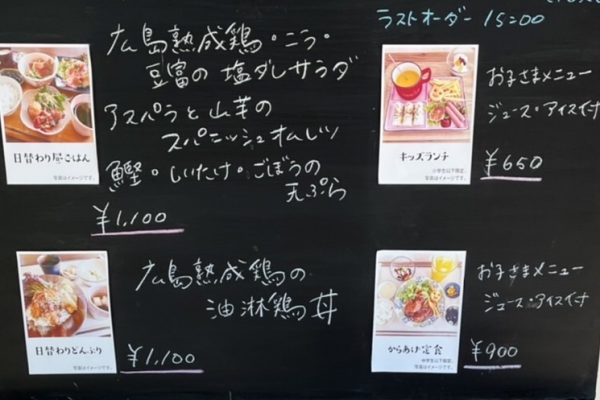 ラストオーダー 15:00
日替わり昼ごはん
写真はイメージです。
広島熟成鶏・こう・
豆富の塩ダレサラダ
アスパラと山芋の
スパニッシュオムレツ
鰹・しいたけ・ごぼうの
天ぷら
¥1,100
キッズランチ
小学生以下限定。
写真はイメージです。
お子さまメニュー
ジュース・アイス付
¥650
日替わりどんぶり
写真はイメージです。
広島熟成鶏の
油淋鶏丼
¥1,100
からあげ定食
中学生以下限定。
写真はイメージです。
お子さまメニュー
ジュース・アイス付
¥900